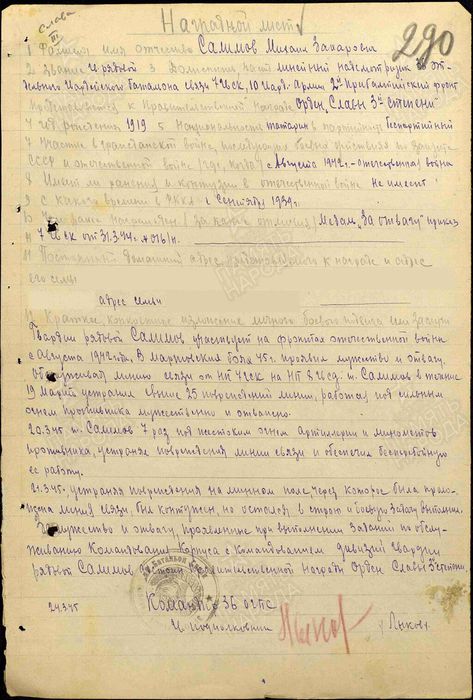 Слава
III
290
Наградной лист
1 Фамилия имя отчество Салимов Михаил Захарович
2 Звание Гв. рядовой 3 Должность, часть линейный надсмотрщик 36 от-
дельного Гвардейского батальона связи 7 УСК, 10 Гвард. Армии 2го Прибалтийский фронт
Представляется к Правительственной Награде Орден „Славы 3й степени"
4 Год рождения 1919 5 Национальность татарин 6 партийность беспартийный
7 Участие в гражданской войне, последующих боевых действиях по защите
СССР и отечественной войне (где, когда) с Августа 1942г. - отечественная война
8 Имеет ли ранения и контузии в отечественной войне не имеет
9 С какого времени в РККА с Сентября 1939г.
10 Чем ранее награжден (за какие отличия) Медаль „За отвагу" приказ
7 УСК от 31.3.44г. № 016/н.
11 Постоянный домашний адрес представляемого к награде и адрес
его семьи
адрес семьи
1) Краткое конкретное изложение личного боевого подвига или заслуг
Гвардии рядовой Салимов участвует на фронтах отечественной войны
с августа 1942 года. В мартовских боях 45г. проявил мужество и отвагу.
Обслуживая линию связи от НП 7 УСК на НП 8 Гв.сд. т. Салимов в течение
19 марта устранил свыше 25 повреждений линии, работая под сильным
огнем противника мужественно и отважно.
20.3.45г. т. Салимов 7 раз под жестоким огнем артиллерии и минометов
противника, устранял повреждения линии связи и обеспечил бесперебойную
ее работу.
21.3.45г. устраняя повреждения на минном поле через которое была проло-
жена линия связи, был контужен, но остался в строю и боевую задачу выполнил.
За мужество и отвагу, проявленные при выполнении заданий по обслу-
живанию Командования корпуса с командованием дивизий Гвардии
рядовой Салимов правительственной награды Орден Славы 3й степени.
24.3.45
Командир 36 огбс
Гв. подполковник / Лыков /
ПАМЯТЬ НАРОДА